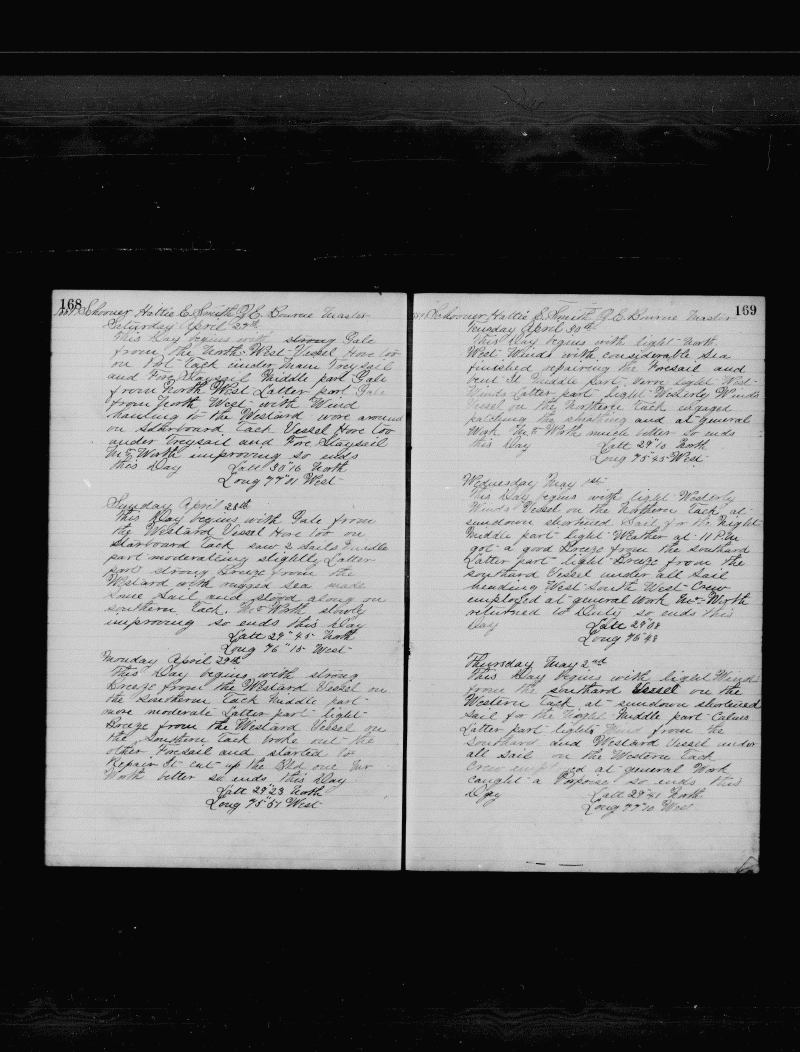 168
Schooner Hattie E. Smith J. E. Bourne Master
Saturday April 27th
This Day begins with strong Gale
from the North West Vessel Hove too
on Port Tack under Main Treysail
and Fore Staysail Middle part Gale
from North West Latter part Gale
from North West with Wind
hauling to the Westard wore around
on Starboard Tack Vessel Hove too
under Treysail and Fore Staysail
Mr Wirth improving so ends
this Day Latt 30"16 North
Long 77"01 West
Sunday April 28th
This Day begins with Gale from
the Westard Vessel Hove too on
Starboard Tack saw 2 Sails Middle
part moderating slightly Latter
part strong Breeze from the
Westard with rugged sea made
some sail and stood along on
southern Tack. Mr Wirth slowly
improving so ends this Day
Latt 29"45 North
Long 76"15 West
Monday April 29th
This Day begins with strong
Breeze from the Westard Vessel on
the Southern Tack Middle part
more moderate Latter part light
Breeze from the Westard Vessel on
the Southern Tack broke out the
other Foresail and started to
Repair it cut up the Old one Mr
Wirth better so ends this Day
Latt 29"23 North
Long 75"51 West
169
Schooner Hattie E. Smith J. E. Bourne Master
Tuesday April 30th
This Day begins with light North
West Winds with considerable Sea
finished repairing the Foresail and
bent it Middle part Verry light West
Winds Latter part light Westerly Winds
Vessel on the Northern Tack engaged
patching the old thing and at general
Work Mr Wirth much better so ends
this Day Latt 29"10 North
Long 75"45 West
Wednesday May 1st
This Day begins with light Westerly
Winds Vessel on the Northern Tack at
sundown shortened Sail for the Night
Middle part light Weather at 11 P.M
got a good Breeze from the Southard
Latter part light Breeze from the
southard Vessel under all Sail
heading West South West Crew
employed at general Work Mr Wirth
returned to Duty so ends this
Day Latt 29"08
Long 76"43
Thursday May 2nd
This Day begins with light Winds
from the southard Vessel on the
Western Tack at sundown shortened
sail for the Night Middle part Calms
Latter part light Wind from the
Southard and Westard Vessel under
all sail on the Western Tack
Crew employed at general Work
caught a Porpoise so ends this
Day Latt 29"41 North
Long 77"10 West